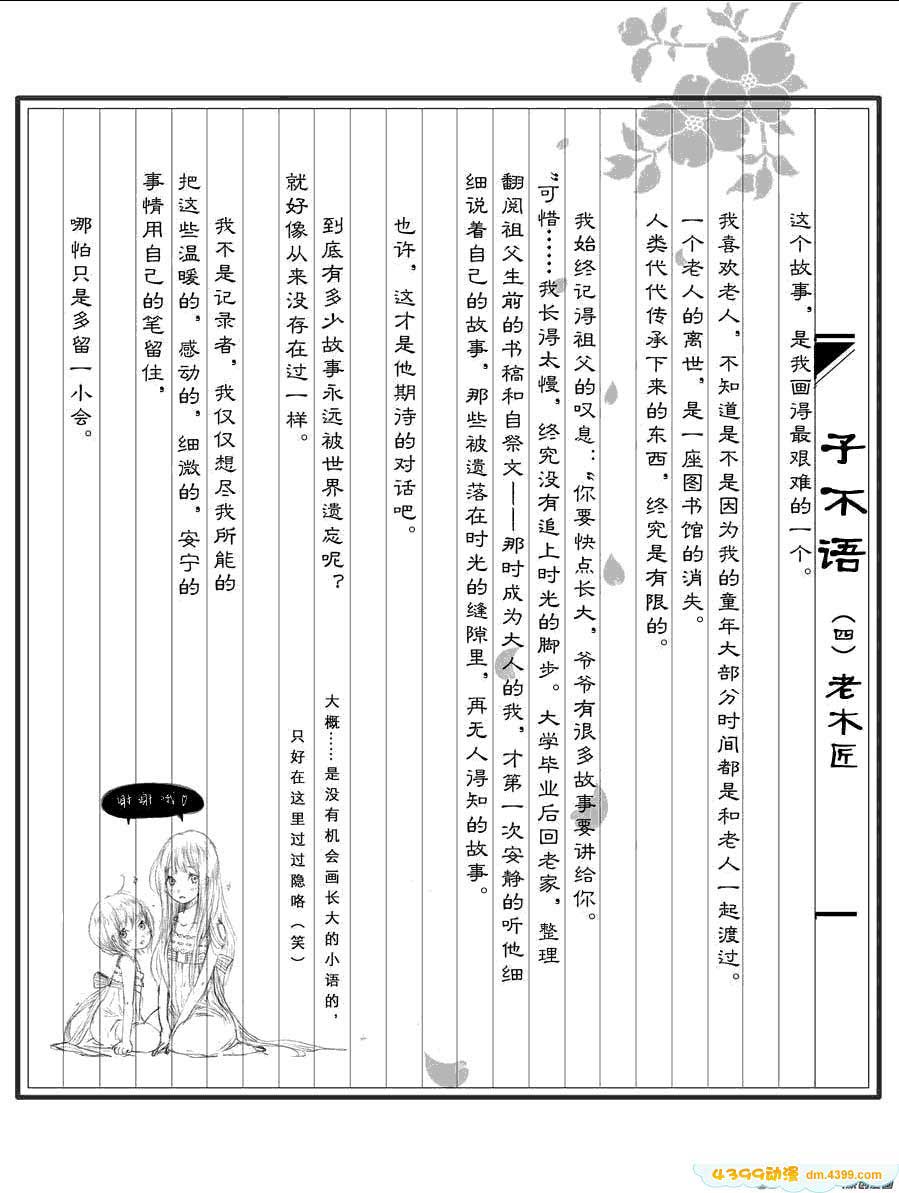 子不语 (四) 老木匠
这个故事，是我画得最艰难的一个。
我喜欢老人，不知道是不是因为我的童年大部分时间都是和老人一起渡过。
一个老人的离世，是一座图书馆的消失。
人类代代传承下来的东西，终究是有限的。
我始终记得祖父的叹息：“你要快点长大，爷爷有很多故事要讲给你。
“可惜……我长得太慢，终究没有追上时光的脚步。大学毕业后回老家，整理
翻阅祖父生前的书稿和自祭文——那时成为大人的我，才第一次安静的听他细
细说着自己的故事，那些被遗落在时光的缝隙里，再无人得知的故事。
也许，这才是他期待的对话吧。
到底有多少故事永远被世界遗忘呢？
就好像从来没存在过一样。
我不是记录者，我仅仅想尽我所能的
把这些温暖的，感动的，细微的，安宁的
事情用自己的笔留住，
哪怕只是多留一小会。
大概……是没有机会画长大的小语的，
只好在这里过过隐咯（笑）
谢谢
4399动漫 dm.4399.com